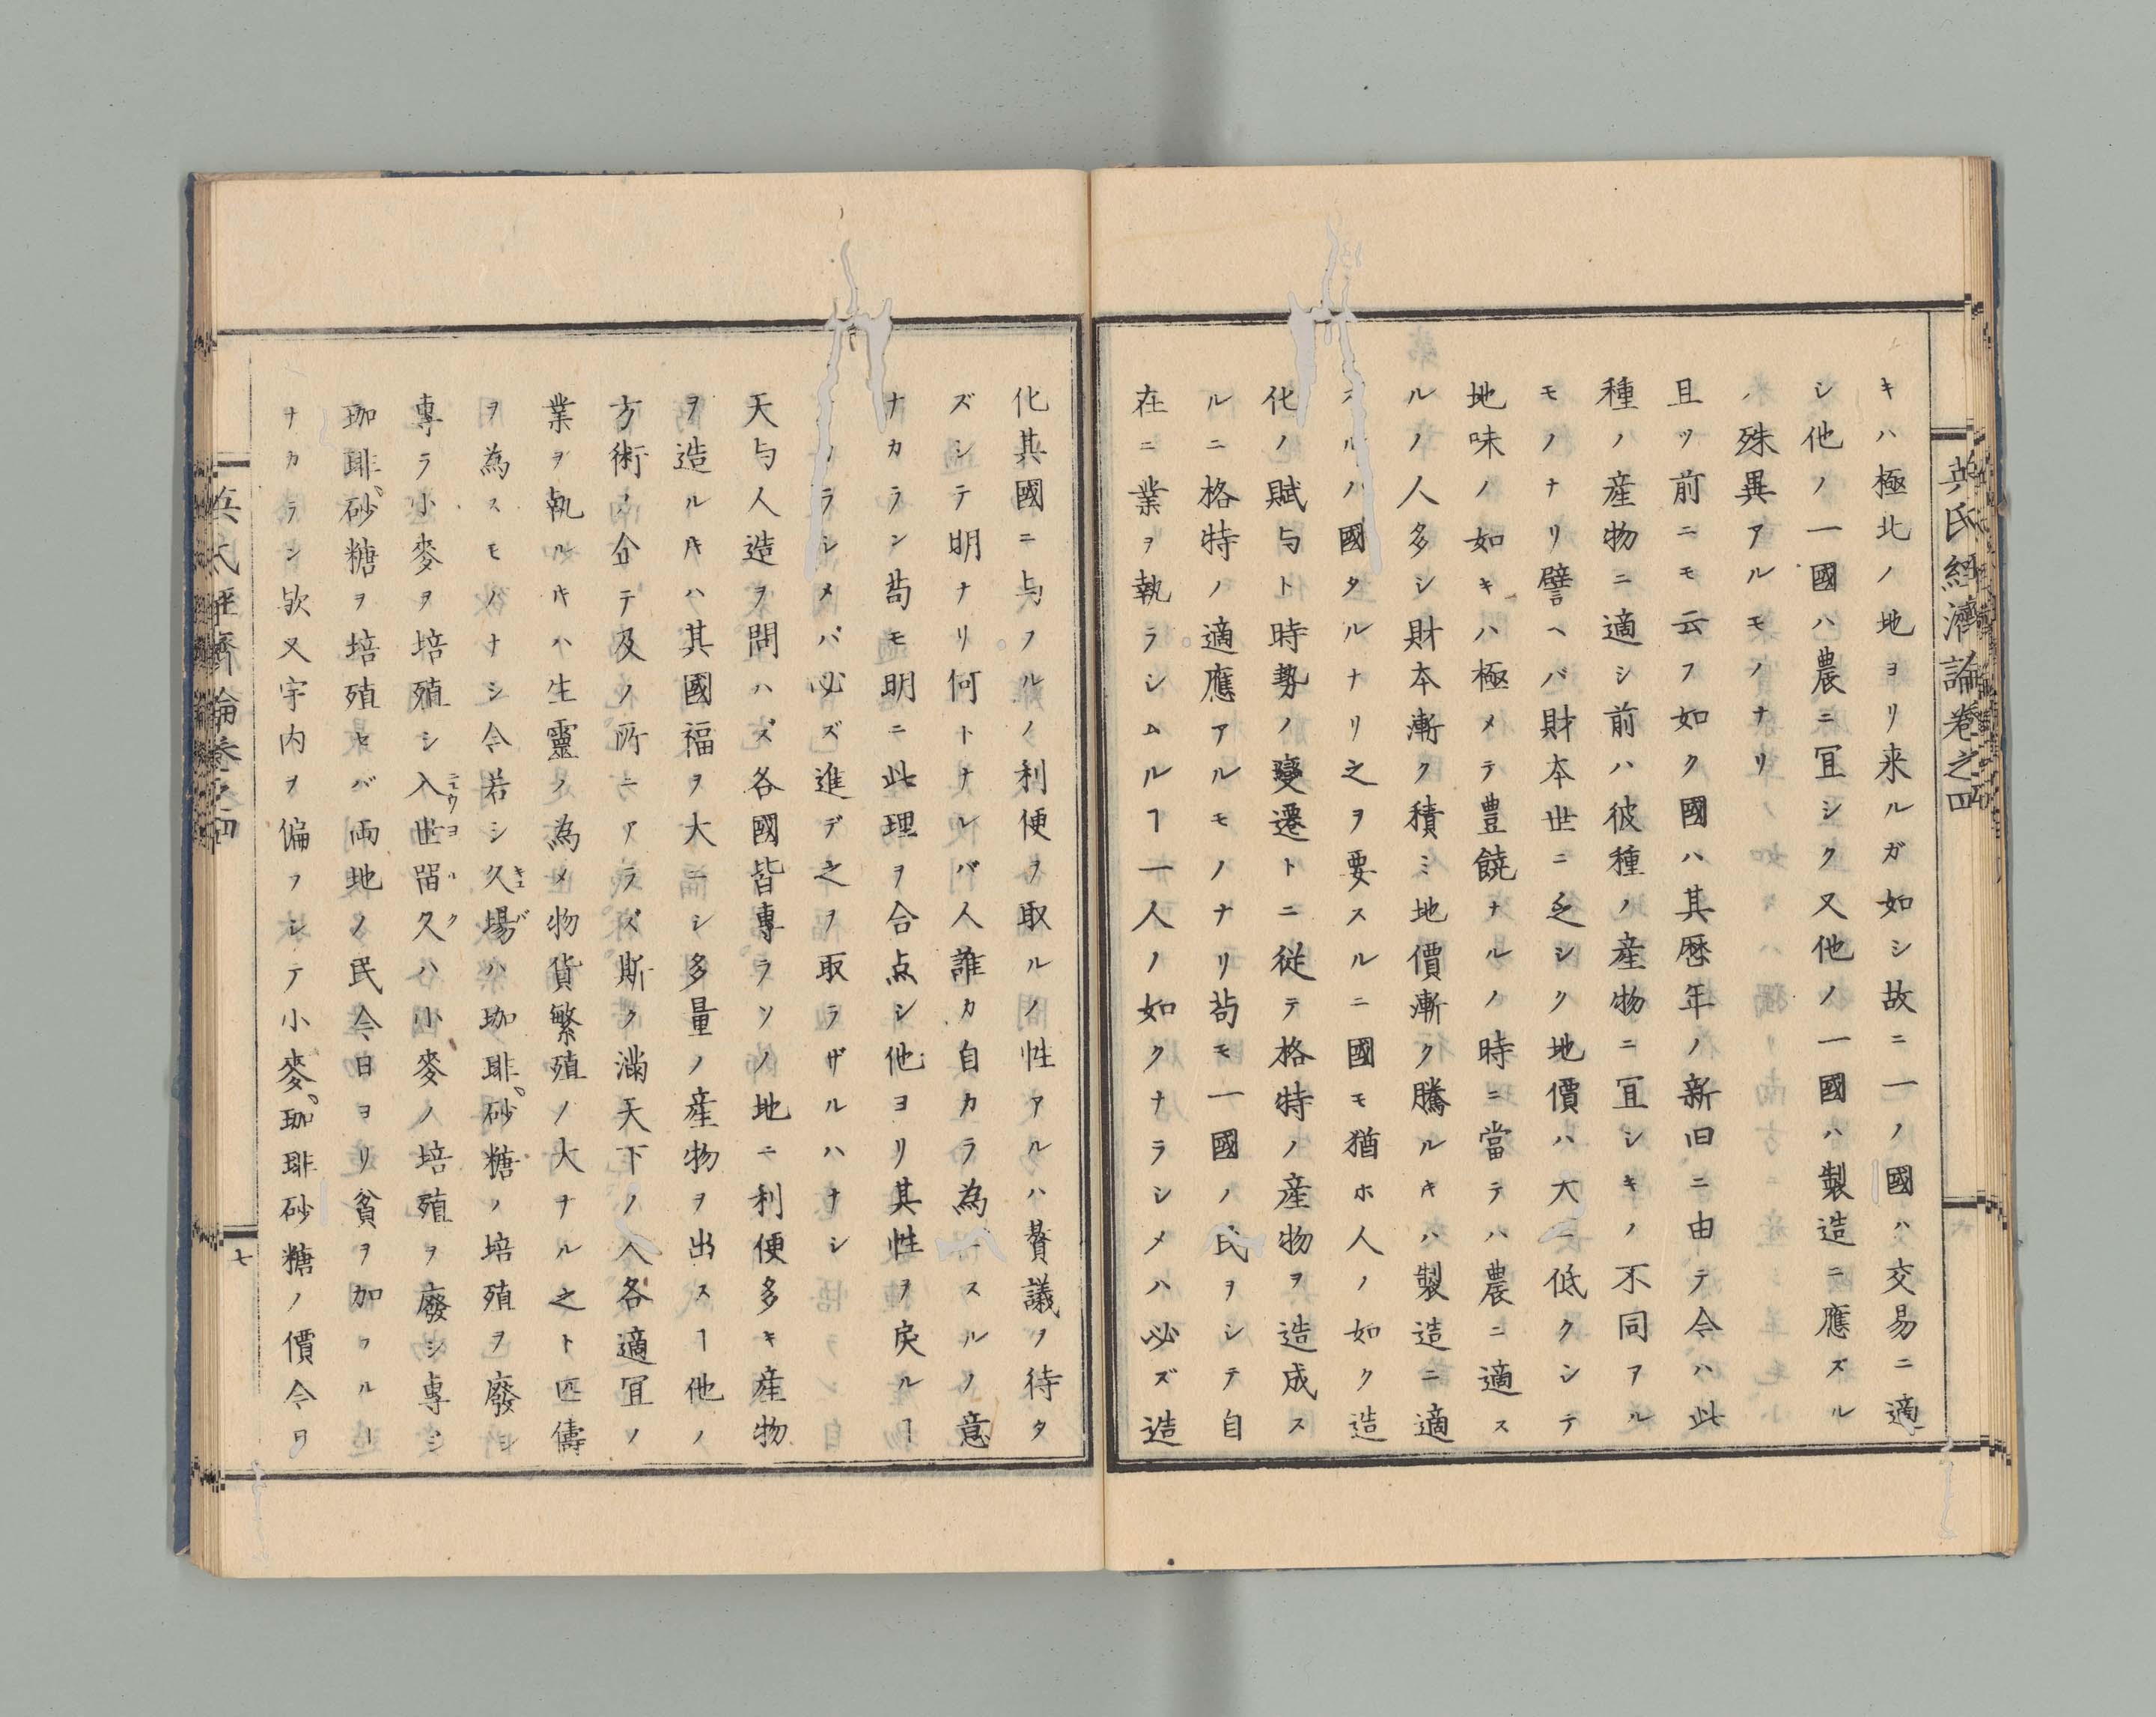 英氏經濟論卷之四
キハ極北ノ地ヨリ来ルガ如シ故ニ一ノ國ハ交易ニ適
シ他ノ一國ハ農ニ冝シク又他ノ一國ハ製造ニ應ズル
ノ殊異アルモノナリ
且ツ前ニモ云フ如ク國ハ其暦年ノ新旧ニ由テ今ハ此
種ノ産物ニ適シ前ハ彼種ノ産物ニ冝シキノ不同アル
モノナリ譬ヘバ財本世ニ乏シク地價ハ大ニ低クシテ
地味ノ如キハ極メテ豊饒ナルノ時ニ當テハ農ニ適ス
ルノ人多シ財本漸ク積ミ地價漸ク騰ルキハ製造ニ適
ルハ國タルナリ之ヲ要スルニ國モ猶ホ人ノ如ク造
化ノ賦与ト時勢ノ變遷トニ従テ格特ノ産物ヲ造成ス
ルニ格特ノ適應アルモノナリ苟モ一國ノ民ヲシテ自
在ニ業ヲ執ラシムルヿ一人ノ如クナラシメハ必ズ造
化其國ニ与フルノ利便ヲ取ルノ性アルハ賛議ヲ待タ
ズシテ明ナリ何トナレバ人誰カ自カラ為ニスルノ意
ナカラン苟モ明ニ此理ヲ合点シ他ヨリ其性ヲ戻ルヿ
ラシメバ必ズ進デ之ヲ取ラザルハナシ
天与人造ヲ問ハズ各國皆專ラソノ地ニ利便多キ産物
ヲ造ルキハ其國福ヲ大ニシ多量ノ産物ヲ出スヿ他ノ
方術ノ企テ及ノ所ニアラズ斯ク滿天下ノ人各適冝ノ
業ヲ執ルキハ生靈ノ為メ物貨繁殖ノ大ナル之ト匹儔
ヲ為スモノナシ今若シ久場ハ珈琲砂糖ノ培殖ヲ廢シ
專ラ小麥ヲ培殖シ入世留久ハ小麥ノ培殖ヲ廢シ專ラ
珈琲砂糖ヲ培殖セバ両地ノ民今日ヨリ貧ヲ加フルヿ
ナカラン欤又宇内ヲ偏フシテ小麥珈琲砂糖ノ價今日
英氏經濟論卷之四
七